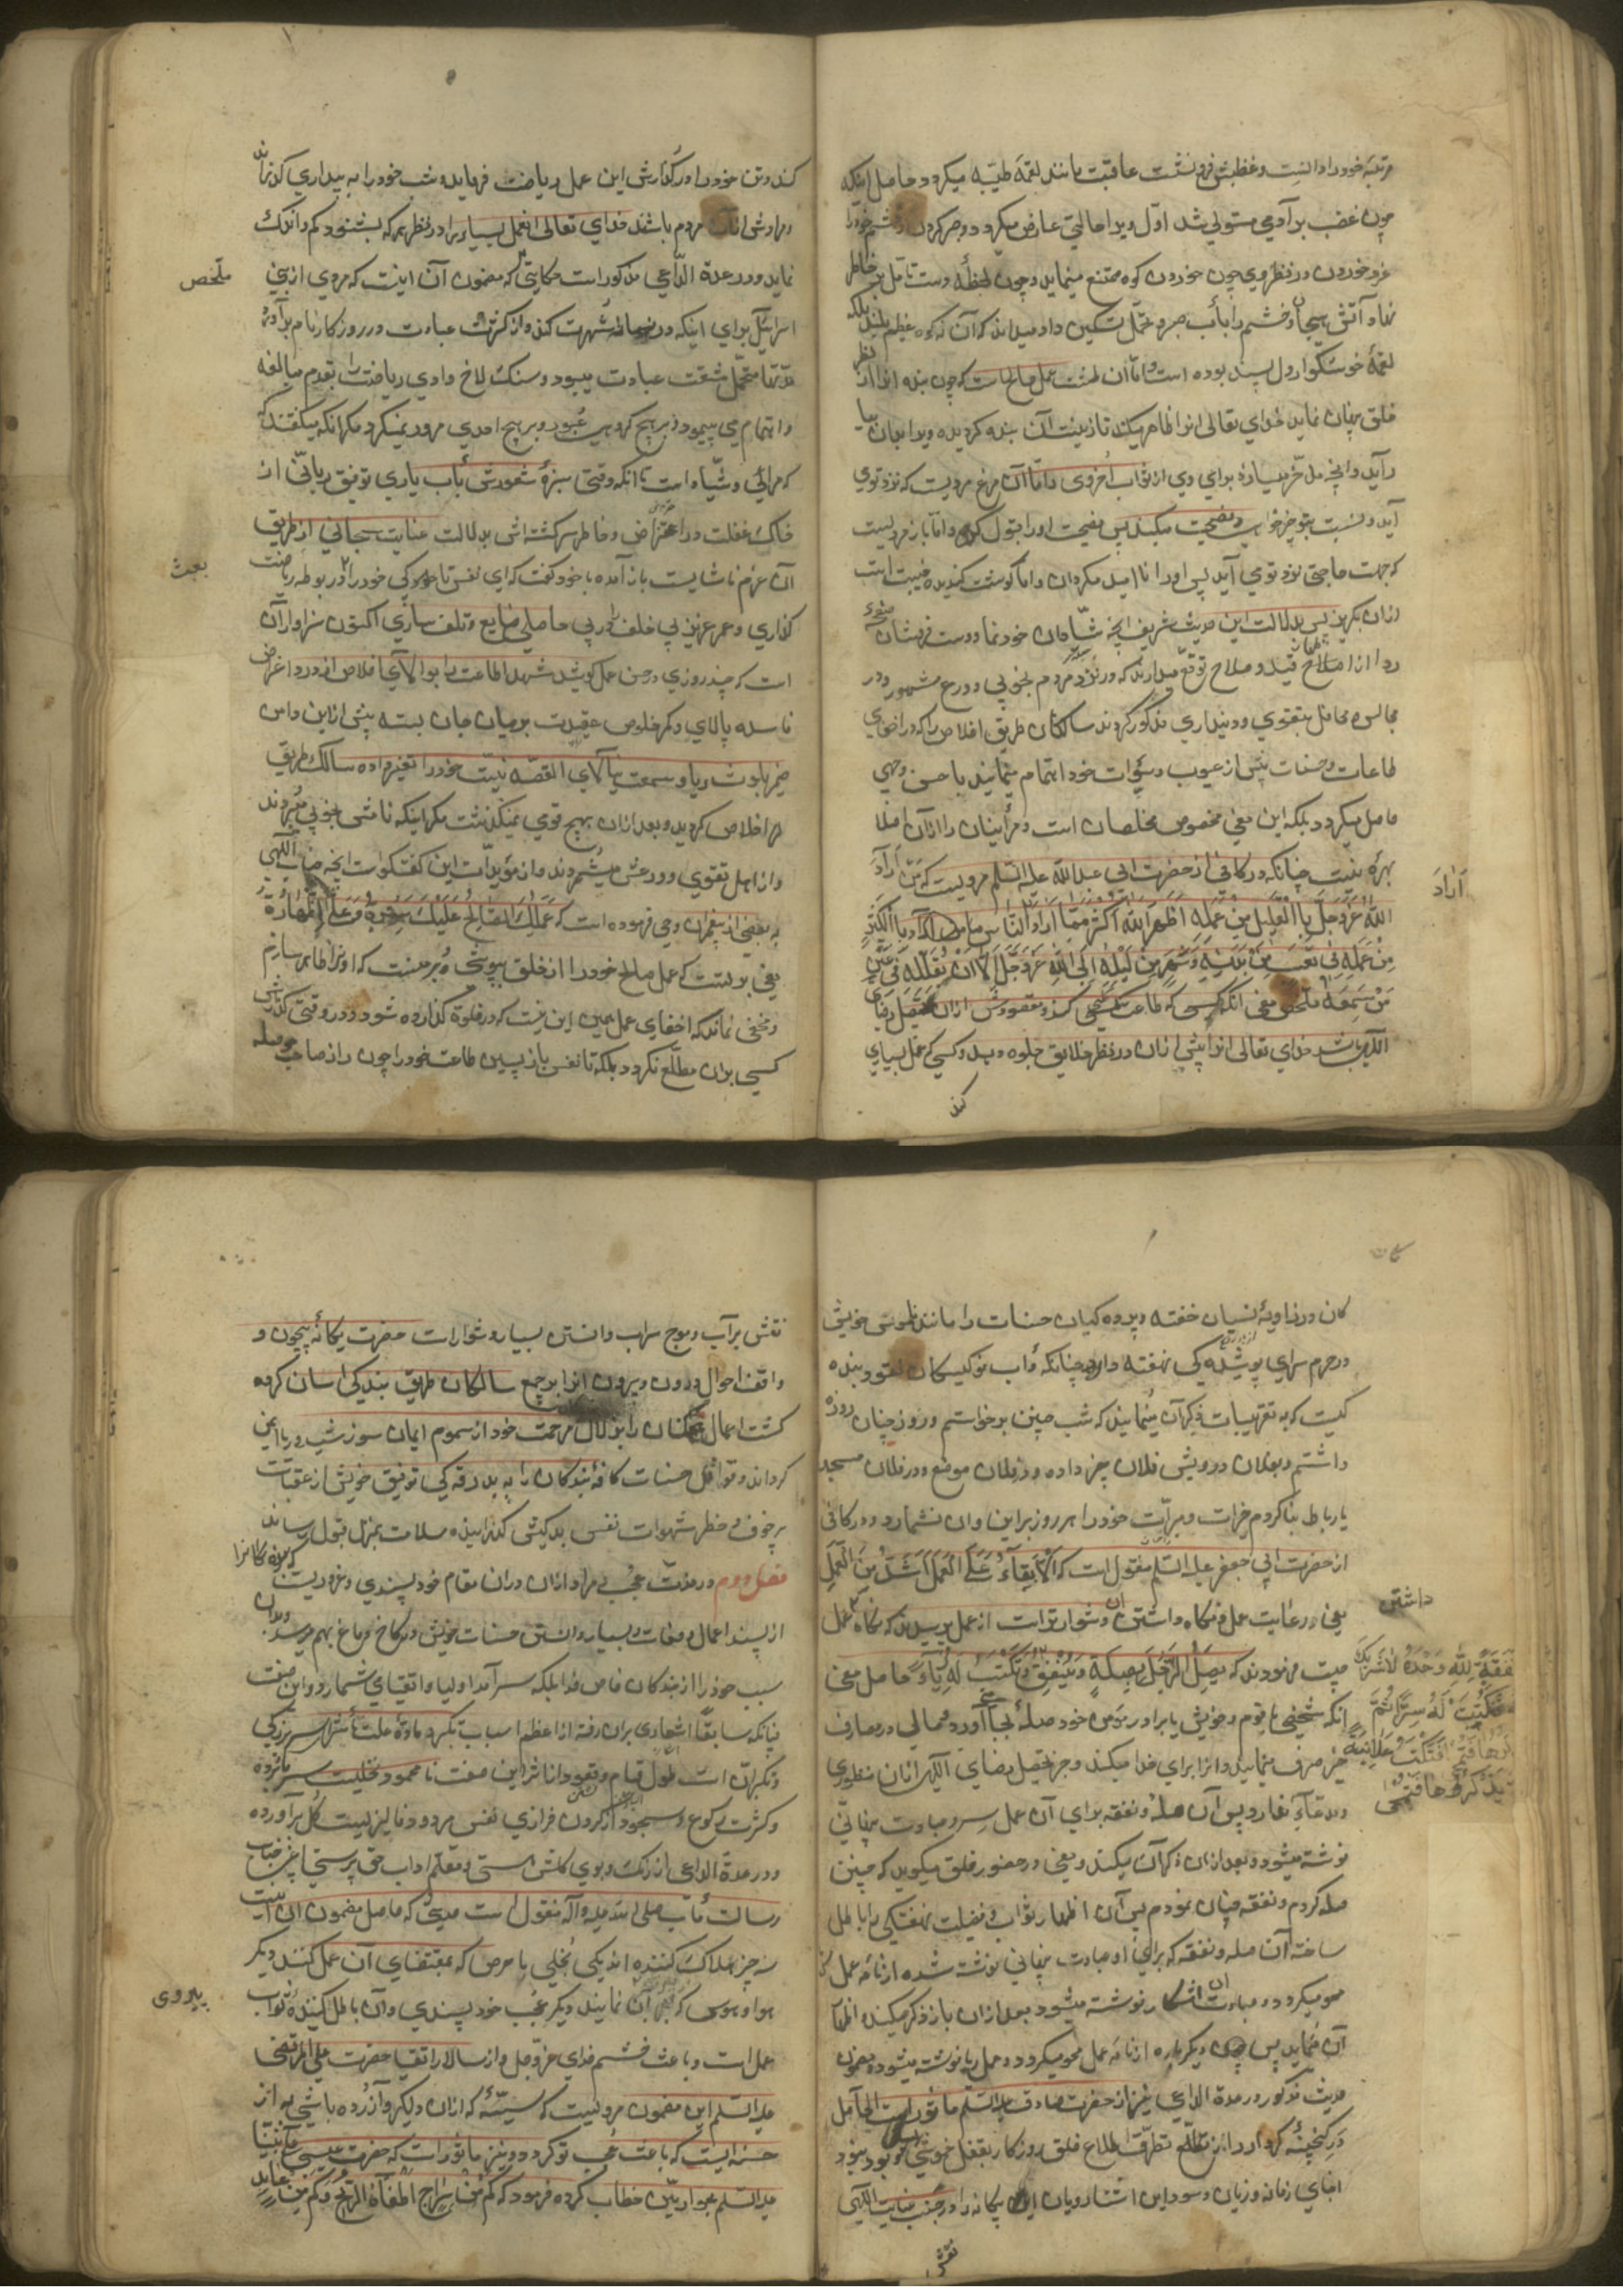 مرتبهٔ خود را دانست و غظبش فرو نشست عاقبت مانند لقمهٔ طیّبه میکردد حاصل اینکه
چون غضب بر آدمی مستولی شد اوّل ویرا حالتی عارض میکردد و صبر کردن و خشم خود را
فرو خوردن در نظر وی چون خوردن کوه ممتنع مینماید و چون لحظهٔ دست تامّل بر خاطر
نهاد و آتش هیجان خشم را بآب صبر و تحمّل تسکین داد میداند که آن نه کوه عظیم بلند بلکه
لقمهٔ خوشکوار دل پسند بوده است و امّا آن طشت عمل صالحست که چون بنده انرا از نظر
خلق پنهان نماید خدای تعالی انرا ظاهر میکند تا زینت آن بنده کردیده
در آید و انچه مدّخر میسازد برای وی از ثواب اخروی و امّا آن مرغ مردیست که نزد توی
آید و نسبت بتو خیرخواهی و نصیحت میکند پس نصیحت او را قبول کن و امّا باز مردیست
که جهت حاجتی نزد تو می آید پس او را ناامید مکردان و امّا کوشت کندیده غیبت است
ازان بکریز پس بدلالت این حدیث شریف انچه
ردا از اصلاح قید و صلاح توقّع میدارند که در نزد مردم بخوبی و ورع مشهور و در
مجالس و محافل بتقوی و دینداری مذکور کردند سالکان طریق اخلاص را که در اخفای
طاعات و حسنات بیش از عیوب و سیّئات خود اهتمام مینمایند باحسن وجهی
حاصل میکردد بلکه این معنی مخصوص مخلصان است و مرأییان را ازان اصلا
بهرهٔ نیست چنانکه در کافی از حضرت ابی عبد الله علیه السّلم مرویست که مَنْ اَرَادَ
اَرَادَ
اللّٰهَ عَزَّ وَجَلَّ بِالْقَلِیلِ مِنْ عَمَلِهِ اَظْهَرَ اللّٰهُ اَکْثَرَ مِمَّا اَرَادَ وَمَنْ اَرَادَ النَّاسَ بِالْکَثِیرِ
مِنْ عَمَلِهِ فِی تَعَبٍ مِنْ بَدَنِهِ وَسَهَرٍ مِنْ لَیْلِهِ اَبَی اللّٰهُ عَزَّ وَجَلَّ اِلَّا اَنْ یُقَلِّلَهُ فِی عَیْنِ
مَنْ سَمِعَهُ ملخّص معنی انکه کسی که طاعت کند و مقصودش ازان تحصیل رضای
الٓهی باشد خدای تعالی انرا بیش ازان در نظر خلایق جلوه دهد و کسی که عمل بسیاری
کند
کند و تن خود را در کذارش این عمل ریاضت فرماید و شب خود را به بیداری کذراند
و مرادش ازان مردم باشند خدای تعالی انعمل بسیار را در نظر هرکه بشنود کم و اندک
نماید و در عدة الدّاعی مذکور است حکایتی که مضمون آن اینست که مردی از بنی
ملخص
اسرائیل برای اینکه شهرت کند و از کثرت عبادت در روزکار نام بر آورد
مدّتها متحمّل مشقّت عبادت میبود و سنک لاخ وادی ریاضت را بقدم مبالغه
و اهتمام می پیمود و بر هیچ کروهی عبور و بر هیچ احدی مرور نمیکرد مکر انکه میکفتند
که مرائی و شیّاد است تا انکه وقتی سبزهٔ شعورش بآب یاری توفیق ربّانی از
خاک غفلت در اهتزاز و خاطر سرکشته اش بدلالت عنایت سبحانی از طریق
آن عزم ناشایست باز آمده با خود کفت که ای نفس تا کی خود را در بوطه ریاضت
بعبث
کذاری و عمر عزیز بی خلف را در پی حاصلی ضایع و تلف سازی اکنون سزاوار آن
است که چند روزی در حسن عمل کوشد شهد اطاعت را اخلاص از درد اغراض
فاسده پالای و کمر خلوص عقیدت بر میان جان بسته بیش ازین دامن
ضمیر بلوث ریا و سمعت نیالای القصّه نیّت خود را تغیر داده سالک طریق
اخلاص کردید و بعد ازان بهیچ قومی نمیکذشت مکر اینکه نامش بخوبی میبردند
و از اهل تقوی و ورعش میشمردند و از مؤیّدات این کفتکو است انچه جناب الٓهی
به بعضی از پیغمبران وحی فرموده است که عَمَلُكَ الصَّالِحُ عَلَیْكَ سَتْرُهُ وَعَلَیَّ اِظْهَارُهُ
یعنی بر تست که عمل صالح خود را از خلق بپوشی و بر منست که او را ظاهر سازم
و مخفی نماند که اخفای عمل همین این نیست که در خلوة کذارده شود و در وقت کذارش
کسی بران مطلّع نکردد بلکه تا نفس بازپسین طاعت خود را چون راز صاحب حوصله
کان در زاویهٔ نسیان خفته و پرده کیان حسنات را مانند ناموس خویش
در حرم سرای پوشیده کی نهفته دارد چنانکه دأب نو کیسکان نقود بنده
کیست که به تقریبات ذکر آن مینمایند که شب چنین برخواستم و روز چنان روزه
داشتم و بفلان درویش فلان چیز داده و در فلان موضع و در فلان مسجد
یا رباط بنا کردم خیرات و مبرّات خود را هر روز بر این و آن نشمارد و در کافی
از حضرت ابی جعفر علیه السّلم منقول است که اَلْاِبْقَاءُ عَلَی الْعَمَلِ اَشَدُّ مِنَ الْعَمَلِ
یعنی در رعایت عمل و نکاه داشتن آن دشوارتر است از عمل پرسیدند که نکاه داشتن عمل
داشتن
چیست فرمودند که یَصِلُ الرَّجُلُ بِصِلَةٍ وَیُنْفِقُ نَفَقَةً لِلّٰهِ وَحْدَهُ لَا شَرِیكَ
فَکُتِبَتْ لَهُ سِرًّا ثُمَّ یَذْکُرُهَا فَتُمْحَی فَتُکْتَبُ عَلَانِیَةً
ثُمَّ یَذْکُرُهَا فَتُمْحَی
وَتُکْتَبُ لَهُ رِیَاءً حاصل معنی
انکه شخصی با قوم و خویش یا برادر مؤمن خود صلهٔ بجا آورد و مالی در مصارف
خیر صرف مینماید و انرا برای خدا میکند و جز تحصیل رضای الٓهی ازان منظوری
و مدّعائی ندارد پس آن صله و نفقه برای آن عمل سرّ و عبادت پنهانی
نوشته میشود و بعد ازان ذکر آن میکند و یعنی در حضور خلق میکوید که چنین
صله کردم و نفقه چنان نمودم پس آن اظهار ثواب و فضیلت نهفتکی را باطل
ساخته آن صله و نفقه که برای او عبادت پنهانی نوشته شده از نامه عمل
محو میکردد و عبادت آشکار نوشته میشود بعد ازان باز ذکر میکند و اظهار
آن مینماید پس دیکر باره از نامه عمل محو میکردد و عمل ریا نوشته میشود و مضمون
حدیث مذکور در عدة الدّاعی نیز از حضرت صادق علیه السّلم مأثور است الحاصل
در کنجینهٔ کردار را از تطرّق اطّلاع خلق روزکار بقفل خموشی
ابنای زمانه و زیان و سود این آشنارویان بیکانه را در جنب عنایت الٓهی
نقش
نقش بر آب و موج سراب دانستن بسیار دشوار است حضرت یکانهٔ بیچون و
واقف احوال درون و بیرون انرا بر جمیع سالکان طریق بندکی آسان کرده
کشت اعمال همکنان را بزلال مرحمت خود از سموم ایمان سوز ریا ایمن
کرداند و قوافل حسنات کافهٔ بندکان را به بدرقه کی توفیق خویش از عقبات
پر خوف و خطر شهوات نفس بد کیش کذرانیده سلامت بمنزل قبول رساند
فصل دوم در مذمّت عجب مراد ازان دران مقام خودپسندی و غروریست که
از پسند اعمال و صفات و بسیار دانستن حسنات خویش در کاخ دماغ بهم میرسد و بدان
سبب خود را از بندکان خاص خدا بلکه سرآمد اولیا و اتقیا می شمارد و این صفت
چنانکه سابقًا اشعاری بران رفته از اعظم اسباب تکبّر و مادّهٔ علّت
و نکبت آن است طول قیام و قعود
و کثرت رکوع و سجود
و در عدة الدّاعی از رنک و بوی کلشن هستی و معلّم آداب حق پرستی اعنی جناب
رسالت مآب صلی الله علیه و آله منقول است حدیثی که حاصل مضمون آن اینست
سه چیز هلاک کننده اند یکی بخلی یا حرصی که بمقتضای آن عمل کنند دیکر
هوا و هوسی که پیروی آن نمایند دیکر عجب خودپسندی و آن باطل کنندهٔ ثواب
پیروی
عمل است و باعث خشم خدای عزّ و جل و از سالار اتقیا حضرت علی المرتضی
علیه السّلم این مضمون مرویست که سیّئهٔ که ازان دلکیر و آزرده باشی به از
حسنه ایست که باعث عجب تو کردد و نیز مأثور است که حضرت عیسی علی نبیّنا
علیه السّلم بحواریّین خطاب کرده فرمود که کَمْ مِنْ سِرَاجٍ اَطْفَأَهُ الرِّیحُ وَکَمْ مِنْ عَابِدٍ